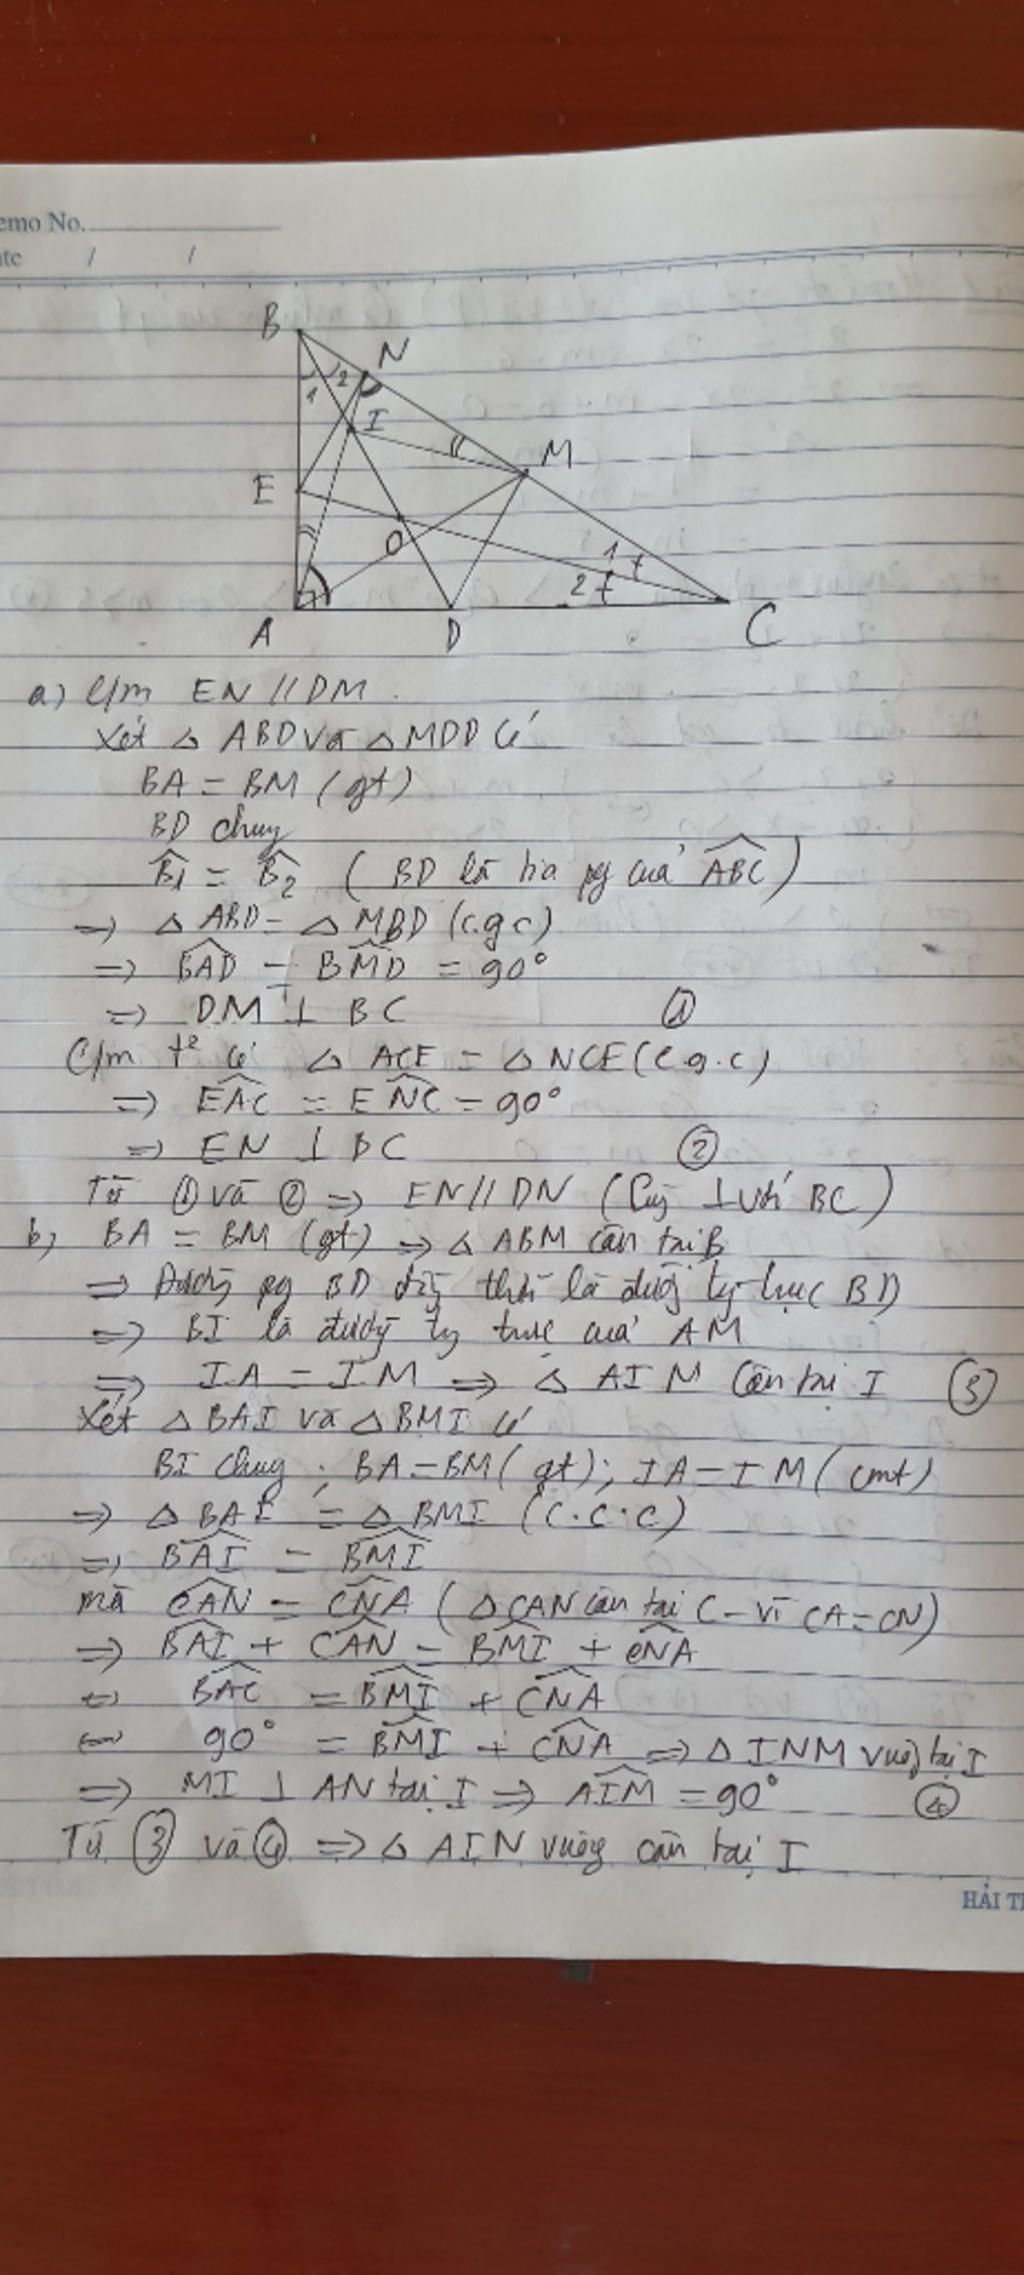 emo No.
ate / /
B
N
1 2
I
M
E
O
1
2
A D C
a) C/m EN // DM.
Xét △ ABD và △ MDD có
BA = BM (gt)
BD chung
B̂1 = B̂2 ( BD là tia pg của ABC )
=> △ ABD = △ MBD (c.g.c)
=> BAD = BMD = 90°
=> DM ⊥ BC ①
C/m t² có △ ACE = △ NCE (c.g.c)
=> EAC = ENC = 90°
=> EN ⊥ BC ②
Từ ① và ② => EN // DN (Cùng ⊥ với BC )
b, BA = BM (gt) => △ ABM cân tại B
=> Đường pg BD đồng thời là đường tg trực BD
=> BI là đường tg trực của AM
=> IA = IM => △ AIM cân tại I ③
Xét △ BAI và △ BMI có
BI chung ; BA = BM ( gt) ; IA = IM ( cmt)
=> △ BAI = △ BMI (c.c.c)
=> BAI = BMI
mà CAN = CNA ( △ CAN cân tại C - vì CA = CN)
=> BAI + CAN = BMI + CNA
<=> BAC = BMI + CNA
<=> 90° = BMI + CNA => △ INM vuông tại I
=> MI ⊥ AN tại I => AIM = 90° ④
Từ ③ và ④ => △ AIN vuông cân tại I
HẢI T